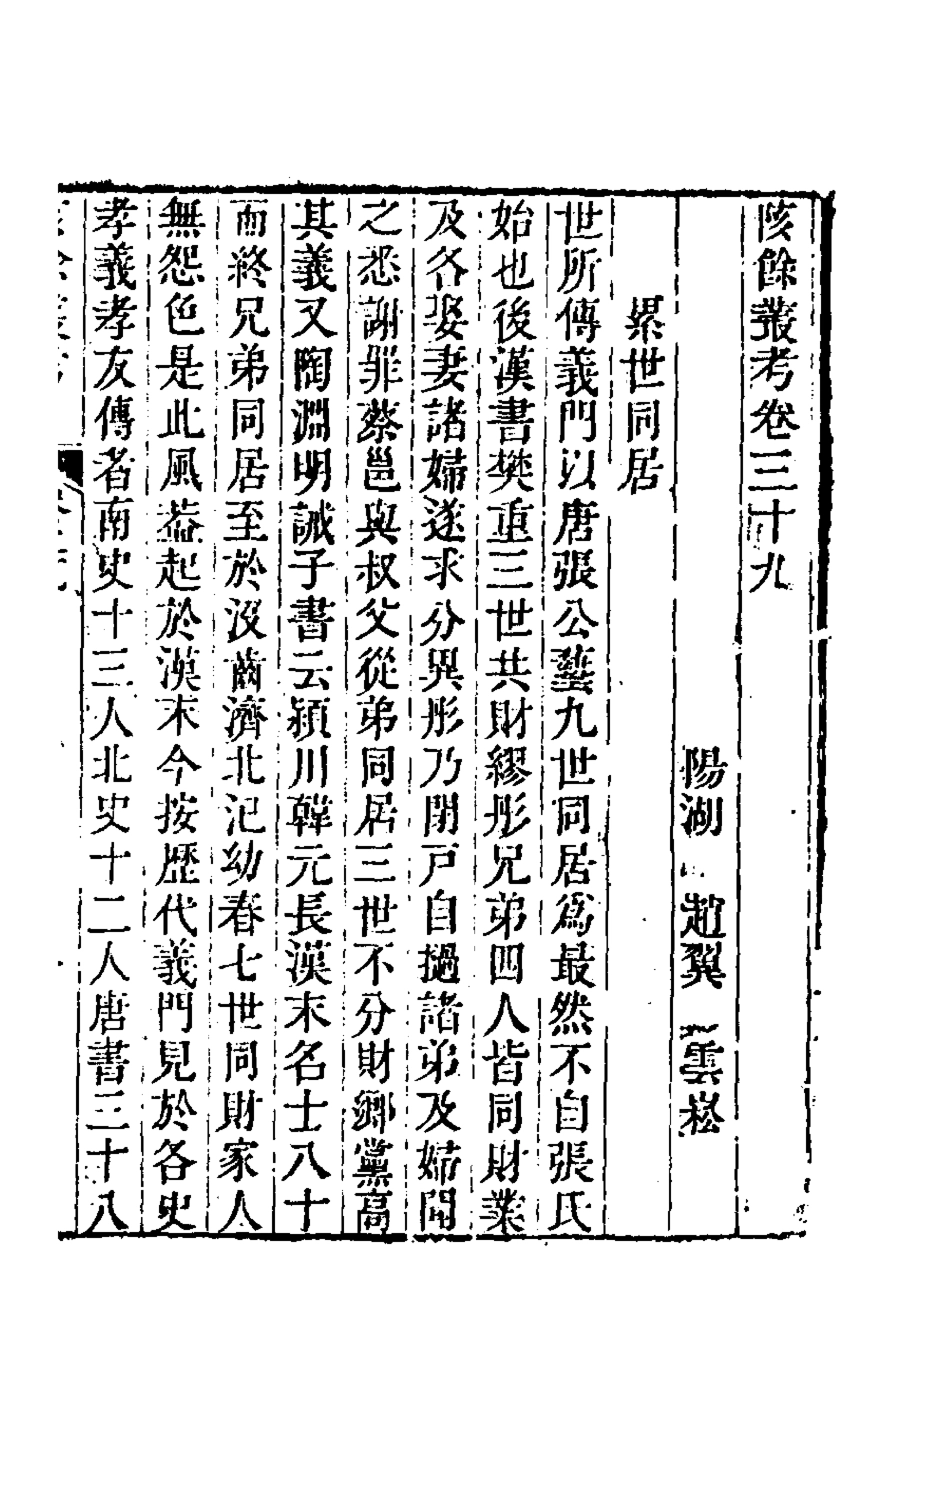 陔餘叢考卷三十九
陽湖 趙翼 雲崧
累世同居
世所傳義門以唐張公藝九世同居爲最然不自張氏
始也後漢書樊重三世共財繆肜兄弟四人皆同財業
及各娶妻諸婦遂求分異肜乃閉戸自撾諸弟及婦聞
之悉謝罪蔡邕與叔父從弟同居三世不分財鄉黨高
其義又陶淵明誡子書云潁川韓元長漢末名士八十
而終兄弟同居至於沒齒濟北氾幼春七世同財家人
無怨色是此風葢起於漢末今按歷代義門見於各史
孝義孝友傳者南史十三人北史十二人唐書三十八